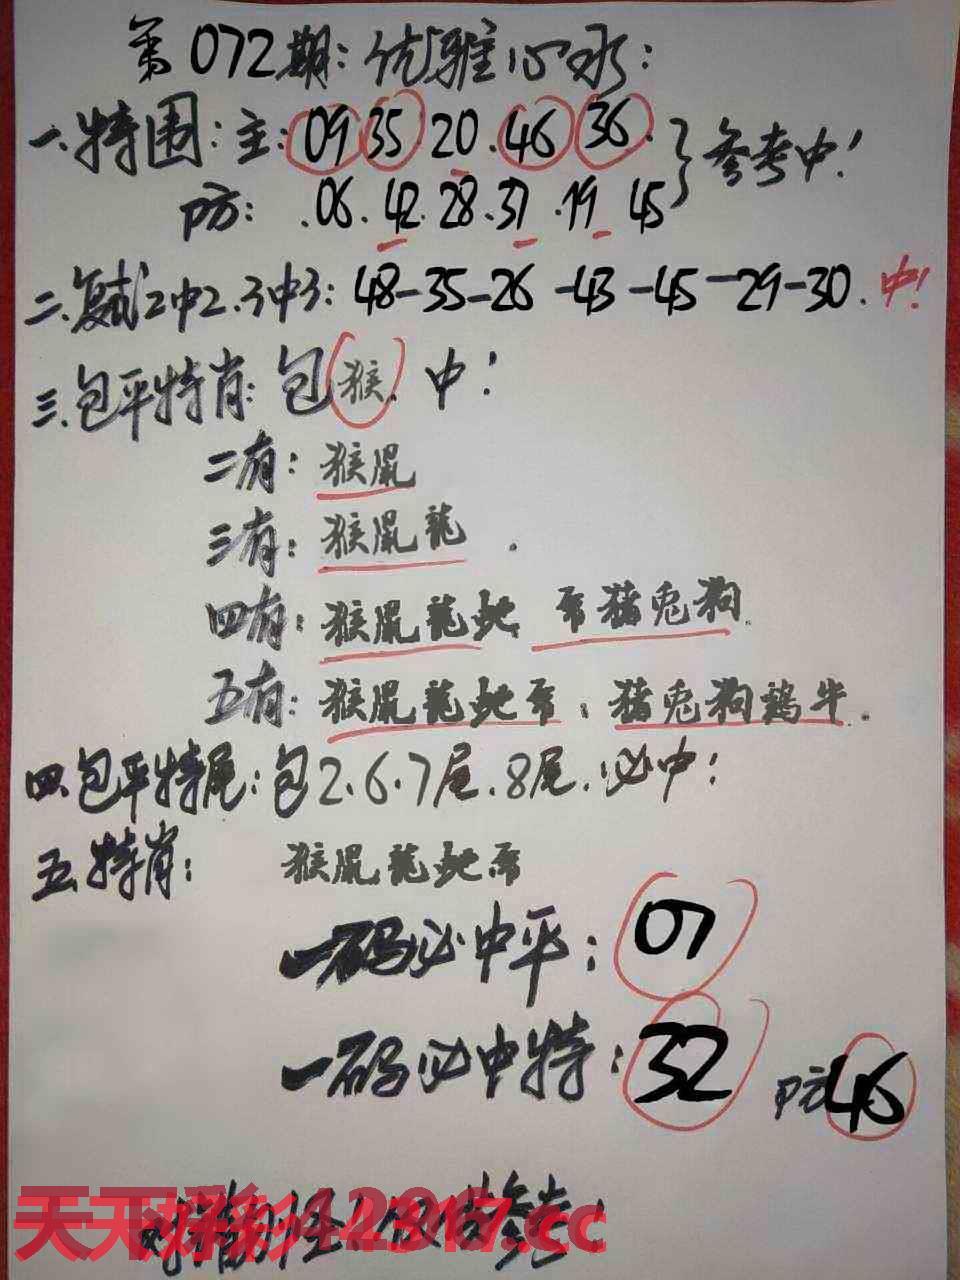 第072期:优雅心水:
一.特围:主:09 35 20.46 36.}参考中!
防:.06.42.28.37.19 45
二.复试2中2.3中3:48-35-26-43-45-29-30.中!
三.包平特肖:包猴.中!
二有:猴鼠
三有:猴鼠龍.
四有:猴鼠龍蛇 马猪兔狗.
五有:猴鼠龍蛇马:猪兔狗鷄牛.
四.包平特尾:包2.6.7尾.8尾.必中!
五.特肖:猴鼠龍蛇马
一码必中平:07
一码必中特:32 防46
天下彩
.cc